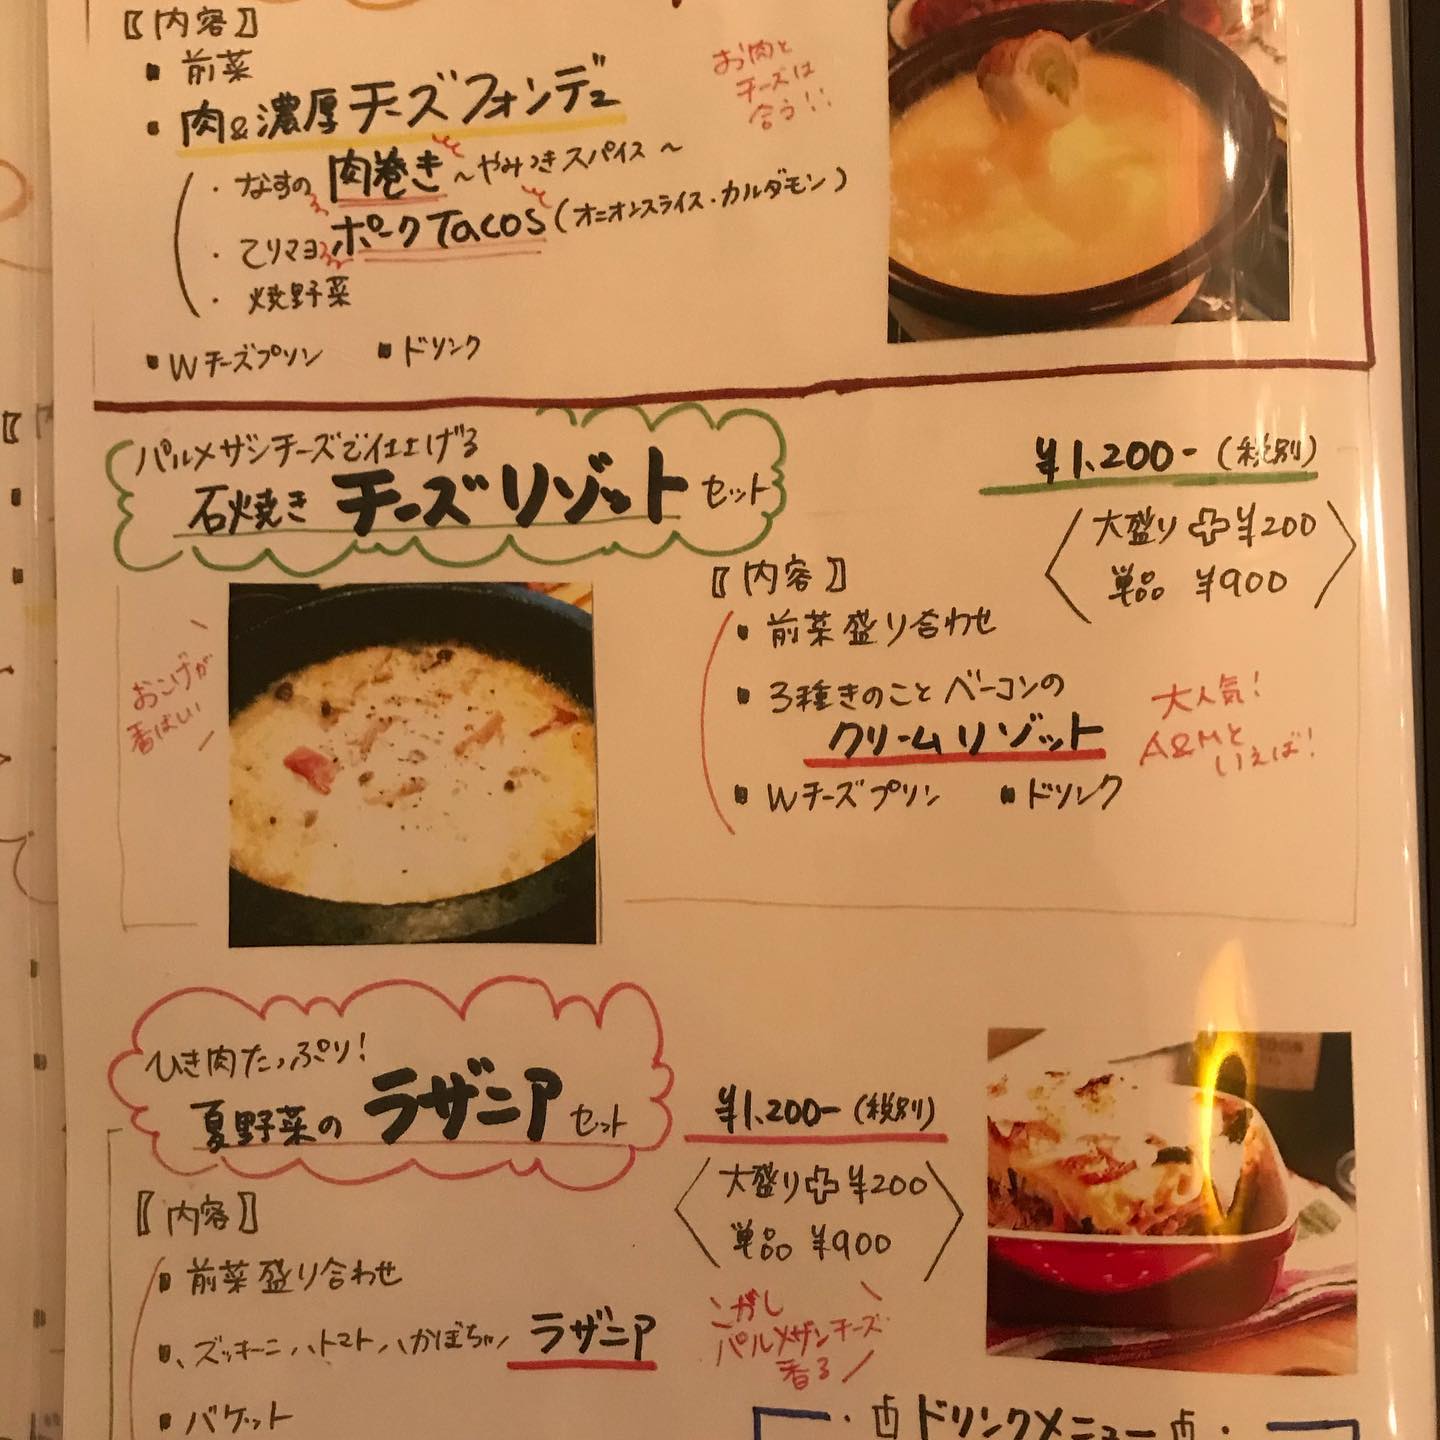 〖内容〗
▪ 前菜
▪ 肉&濃厚チーズフォンデュ
お肉と
チーズは
合う!!
・なすの肉巻き～やみつきスパイス～
・てりマヨポークTacos(オニオンスライス・カルダモン)
・焼野菜
▪ Wチーズプリン ▪ ドリンク
パルメザンチーズで仕上げる
石焼き チーズリゾットセット
¥1,200-(税別)
大盛り✚¥200
単品 ¥900
おこげが
香ばしい
〖内容〗
▪ 前菜盛り合わせ
▪ 3種きのことベーコンの
クリームリゾット
大人気!
A&Mと
いえば!
▪ Wチーズプリン ▪ ドリンク
ひき肉たっぷり!
夏野菜のラザニアセット
¥1,200-(税別)
大盛り✚¥200
単品 ¥900
〖内容〗
▪ 前菜盛り合わせ
▪ ズッキーニ、トマト、かぼちゃ ラザニア
こがし
パルメザンチーズ
香る
▪ バゲット
・ドリンクメニュー・